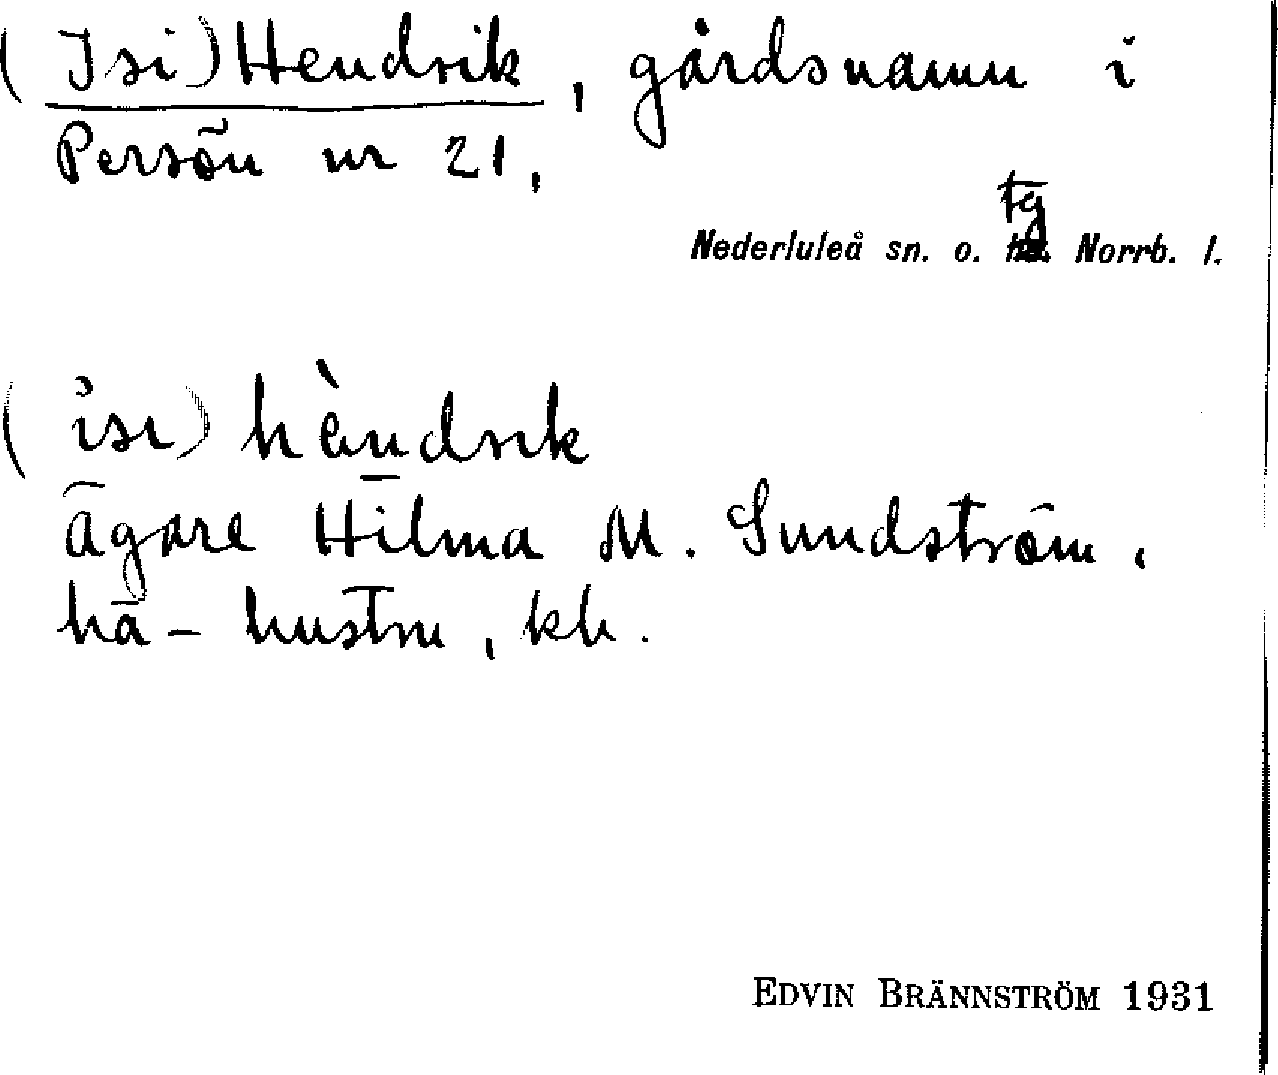 (Isi) Hendrik, gårdsnamn i
Persön nr 21,
tg
Nederluleå sn. o. Norrb. l.
(isi) hèndrik
ägare Hilma M. Sundström,
hä-hustru, kh.
EDVIN BRÄNNSTRÖM 1931